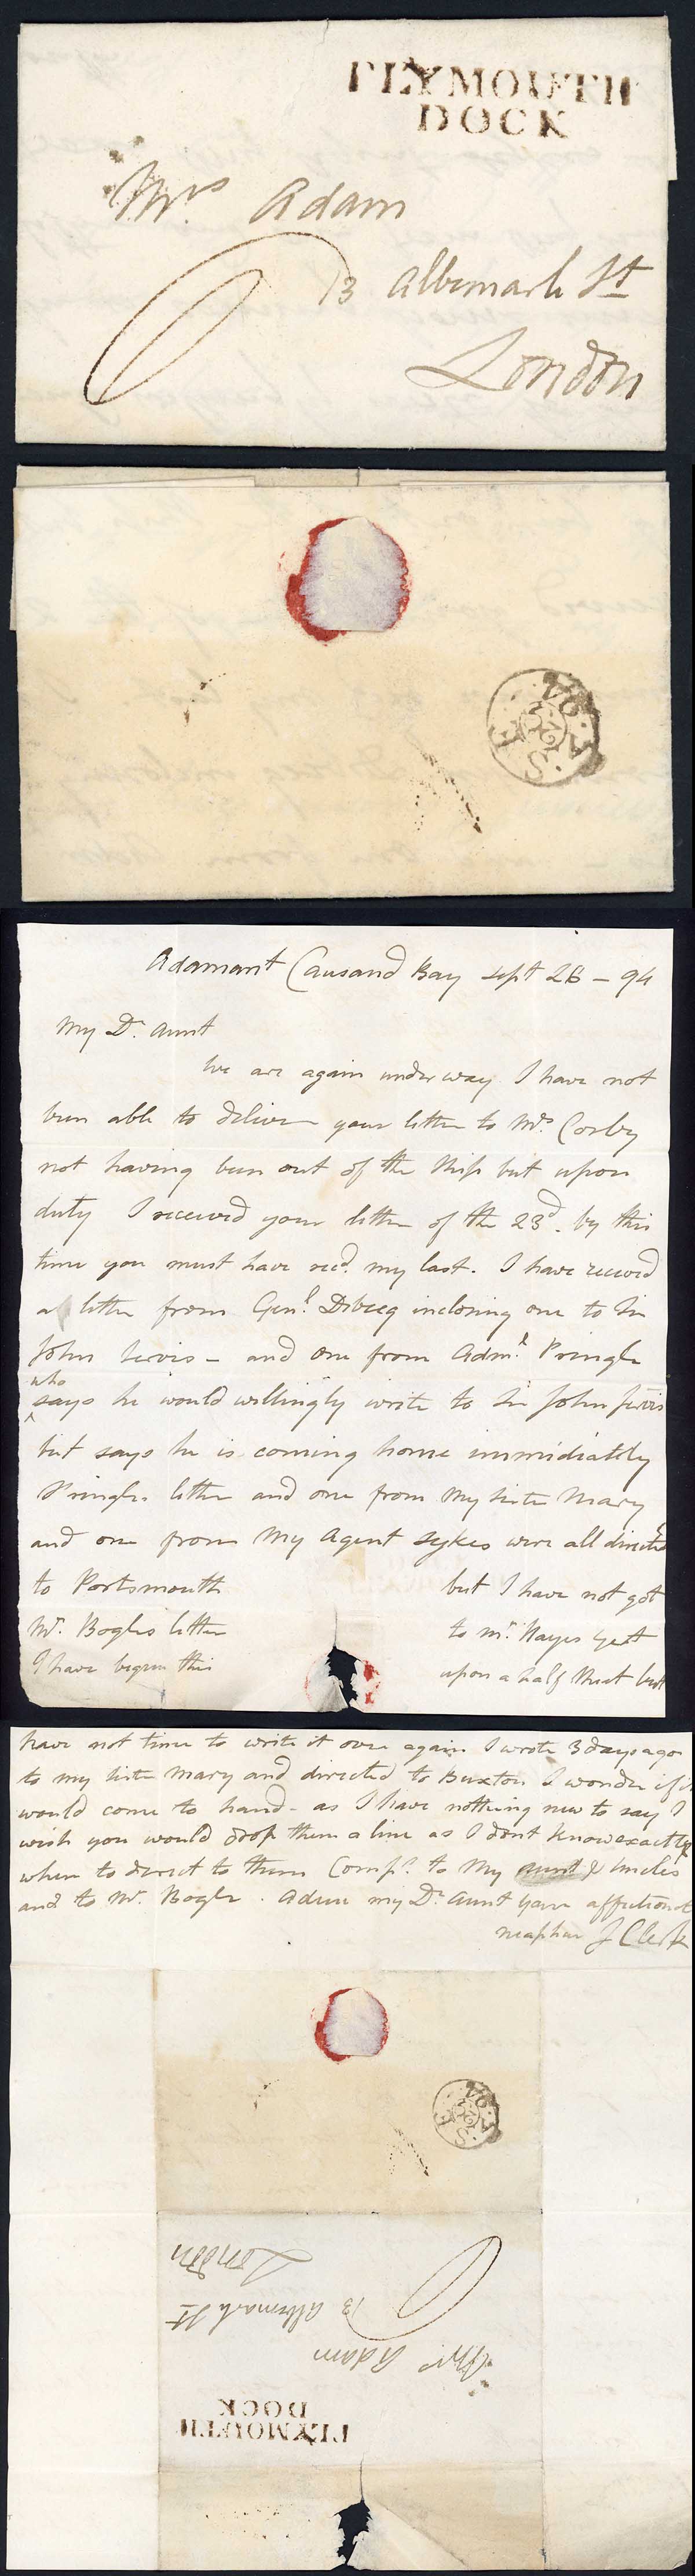 PLYMOUTH
DOCK
Mrs Adam
13 Albemarle St
London
Adamant Causand Bay Sept 26 - 94
My Dr. Aunt
We are again under way I have not
been able to deliver your letter to Mrs. Corby
not having been out of the Ship but upon
duty I received your letter of the 23d. by this
time you must have recd. my last. I have received
a letter from Genl. incloseing one to Sir
John Jervis - and one from Adml. Pringle
who
says he would willingly write to Sir John Jervis
but says he is coming home immidiatlly
Pringles letter and one from my sister Mary
and one from my Agent Sykes were all directed
to Portsmouth but I have not got
Mr. Bogles letter to Mr. Hayes yet
I have begun this upon a half Sheet but
have not time to write it over again I wrote 3 days ago
to my sister Mary and directed to Buxton I wonder if it
would come to hand - as I have nothing new to say I
wish you would drop them a line as I dont know exactly
when to direct to them Compts. to My aunt & Uncles
and to Mr. Bogle. Adieu my Dr. Aunt your affectionat
neaphew J Clerk
London
13 Albemarle St
Mrs Adam
PLYMOUTH
DOCK